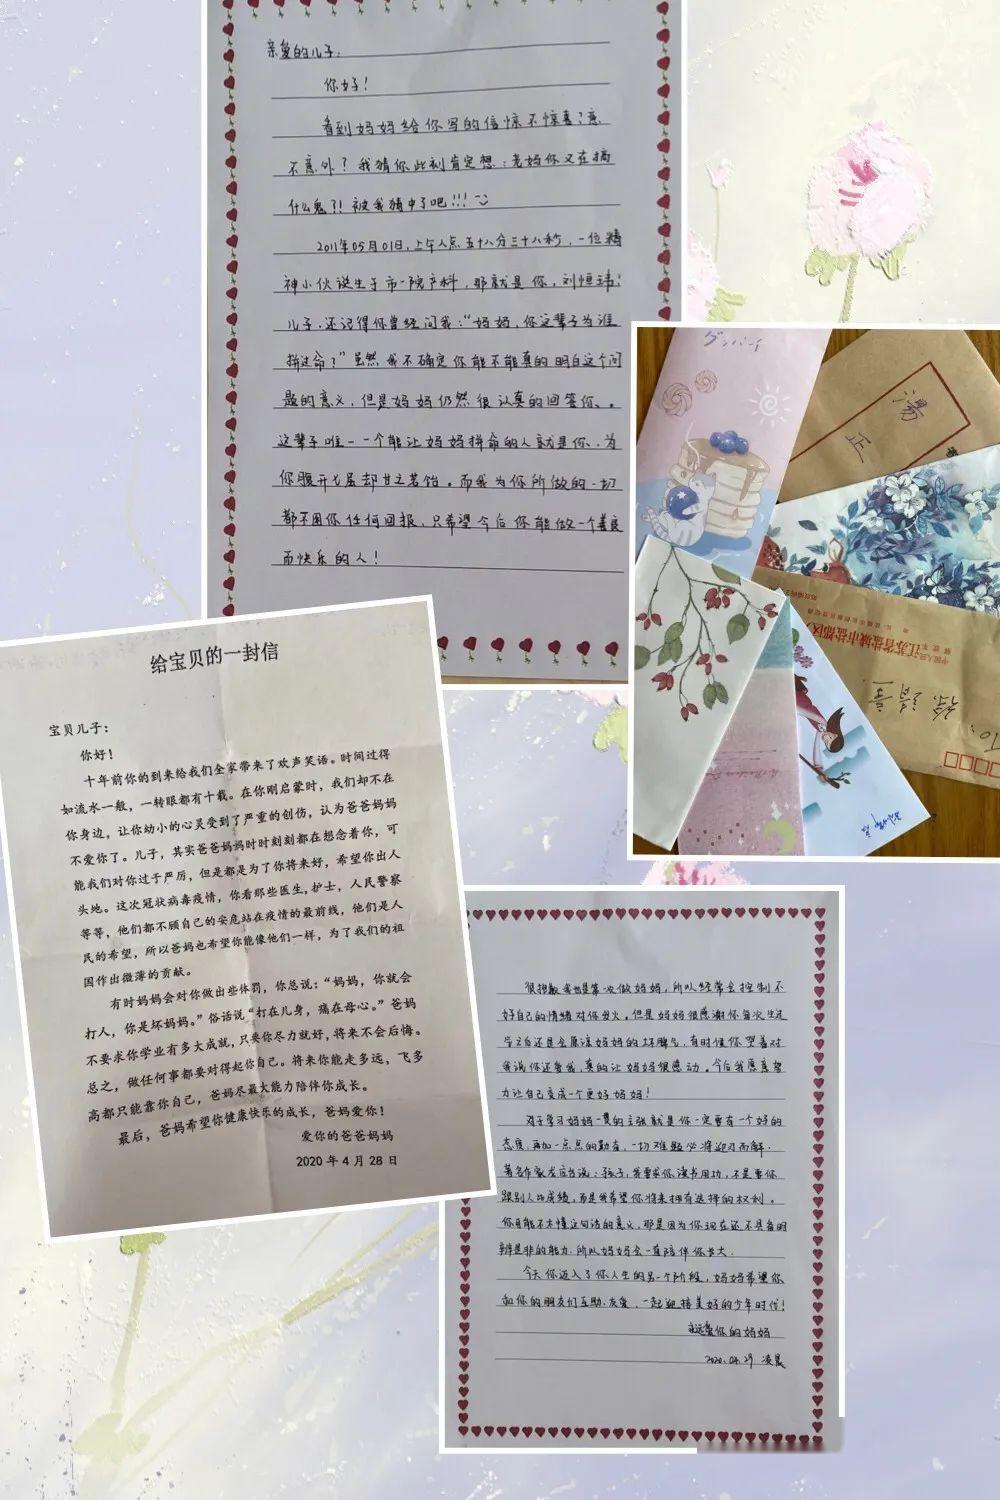 亲爱的儿子:
你好!
看到妈妈给你写的信惊不惊喜?意
不意外?我猜你此刻肯定想:老妈你又在搞
什么鬼?!被我猜中了吧!!!
2011年05月01日,上午八点五十八分三十八秒,一位精
神小伙诞生于市一院产科,那就是你,刘恒玮!
儿子,还记得你曾经问我:“妈妈,你这辈子为谁
拼过命?”虽然我不确定你能不能真的明白这个问
题的意义,但是妈妈仍然很认真的回答你、。
这辈子唯一一个能让妈妈拼命的人就是你,为
你腹开七层却甘之若饴。而我为你所做的一切
都不图你任何回报,只希望今后你能做一个善良
而快乐的人!
ダンバイ
湯
正
中国人民
江苏省盐城市盐都区
徐靖
To:
给宝贝的一封信
宝贝儿子:
你好!
十年前你的到来给我们全家带来了欢声笑语。时间过得
如流水一般,一转眼都有十载。在你刚启蒙时,我们却不在
你身边,让你幼小的心灵受到了严重的创伤,认为爸爸妈妈
不爱你了。儿子,其实爸爸妈妈时时刻刻都在想念着你,可
能我们对你过于严厉,但是都是为了你将来好,希望你出人
头地。这次冠状病毒疫情,你看那些医生,护士,人民警察
等等,他们都不顾自己的安危站在疫情的最前线,他们是人
民的希望,所以爸妈也希望你能像他们一样,为了我们的祖
国作出微薄的贡献。
有时妈妈会对你做出些体罚,你总说:“妈妈,你就会
打人,你是坏妈妈。”俗话说“打在儿身,痛在母心。”爸妈
不要求你学业有多大成就,只要你尽力就好,将来不会后悔。
总之,做任何事都要对得起你自己。将来你能走多远,飞多
高都只能靠你自己,爸妈尽最大能力陪伴你成长。
最后,爸妈希望你健康快乐的成长,爸妈爱你!
爱你的爸爸妈妈
2020 年 4 月 28 日
很抱歉我也是第一次做妈妈,所以经常会控制不
好自己的情绪对你发火。但是妈妈很感谢你每次生过
气之后还是会原谅妈妈的坏脾气,有时候你哭着对
我说你还爱我,真的让妈妈很感动。今后我愿意努
力让自己变成一个更好妈妈!
对于学习妈妈一贯的主张就是你一定要有一个好的
态度,再加一点点的勤奋,一切难题必将迎刃而解.
著名作家龙应台说:孩子,我要求你读书用功,不是要你
跟别人比成绩,而是我希望你将来拥有选择的权利。
你目能不太懂这句话的意义,那是因为你现在还不具备明
辨是非的能力.所以妈妈会一直陪伴你长大.
今天你迈入了你人生的另一个阶段,妈妈希望你
和你的朋友们互助,友爱,一起迎接美好的少年时代!
永远爱你的妈妈
2020.04.29 凌晨